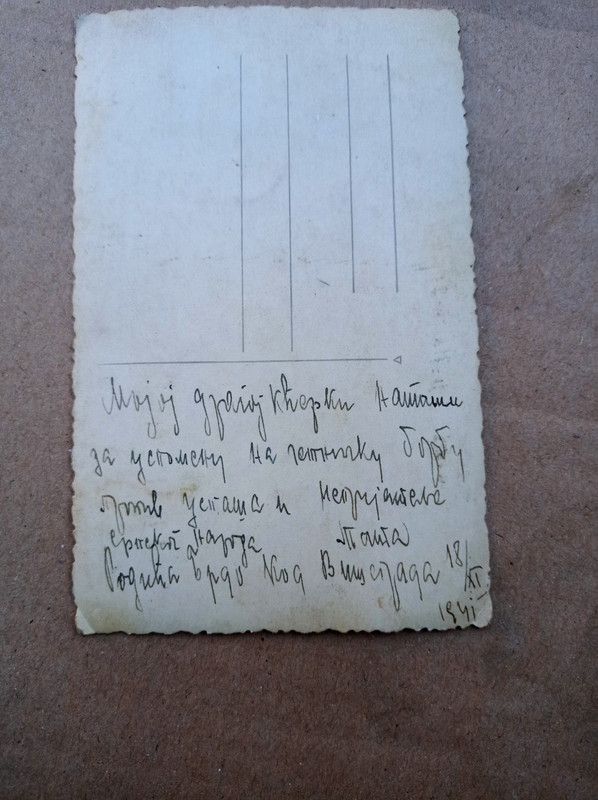 Мојој драгој кћерки Наташи
за успомену на четничку борбу
против усташа и непријатеља
српског народа Тата
брдо код Вишеграда 18/XI
1941